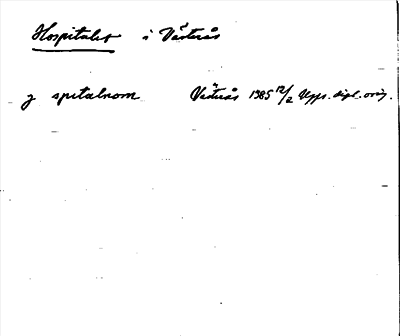 Hospitalet i Västerås
j spitalnom Västerås 1385 12/2 Upps. dipl. orig.